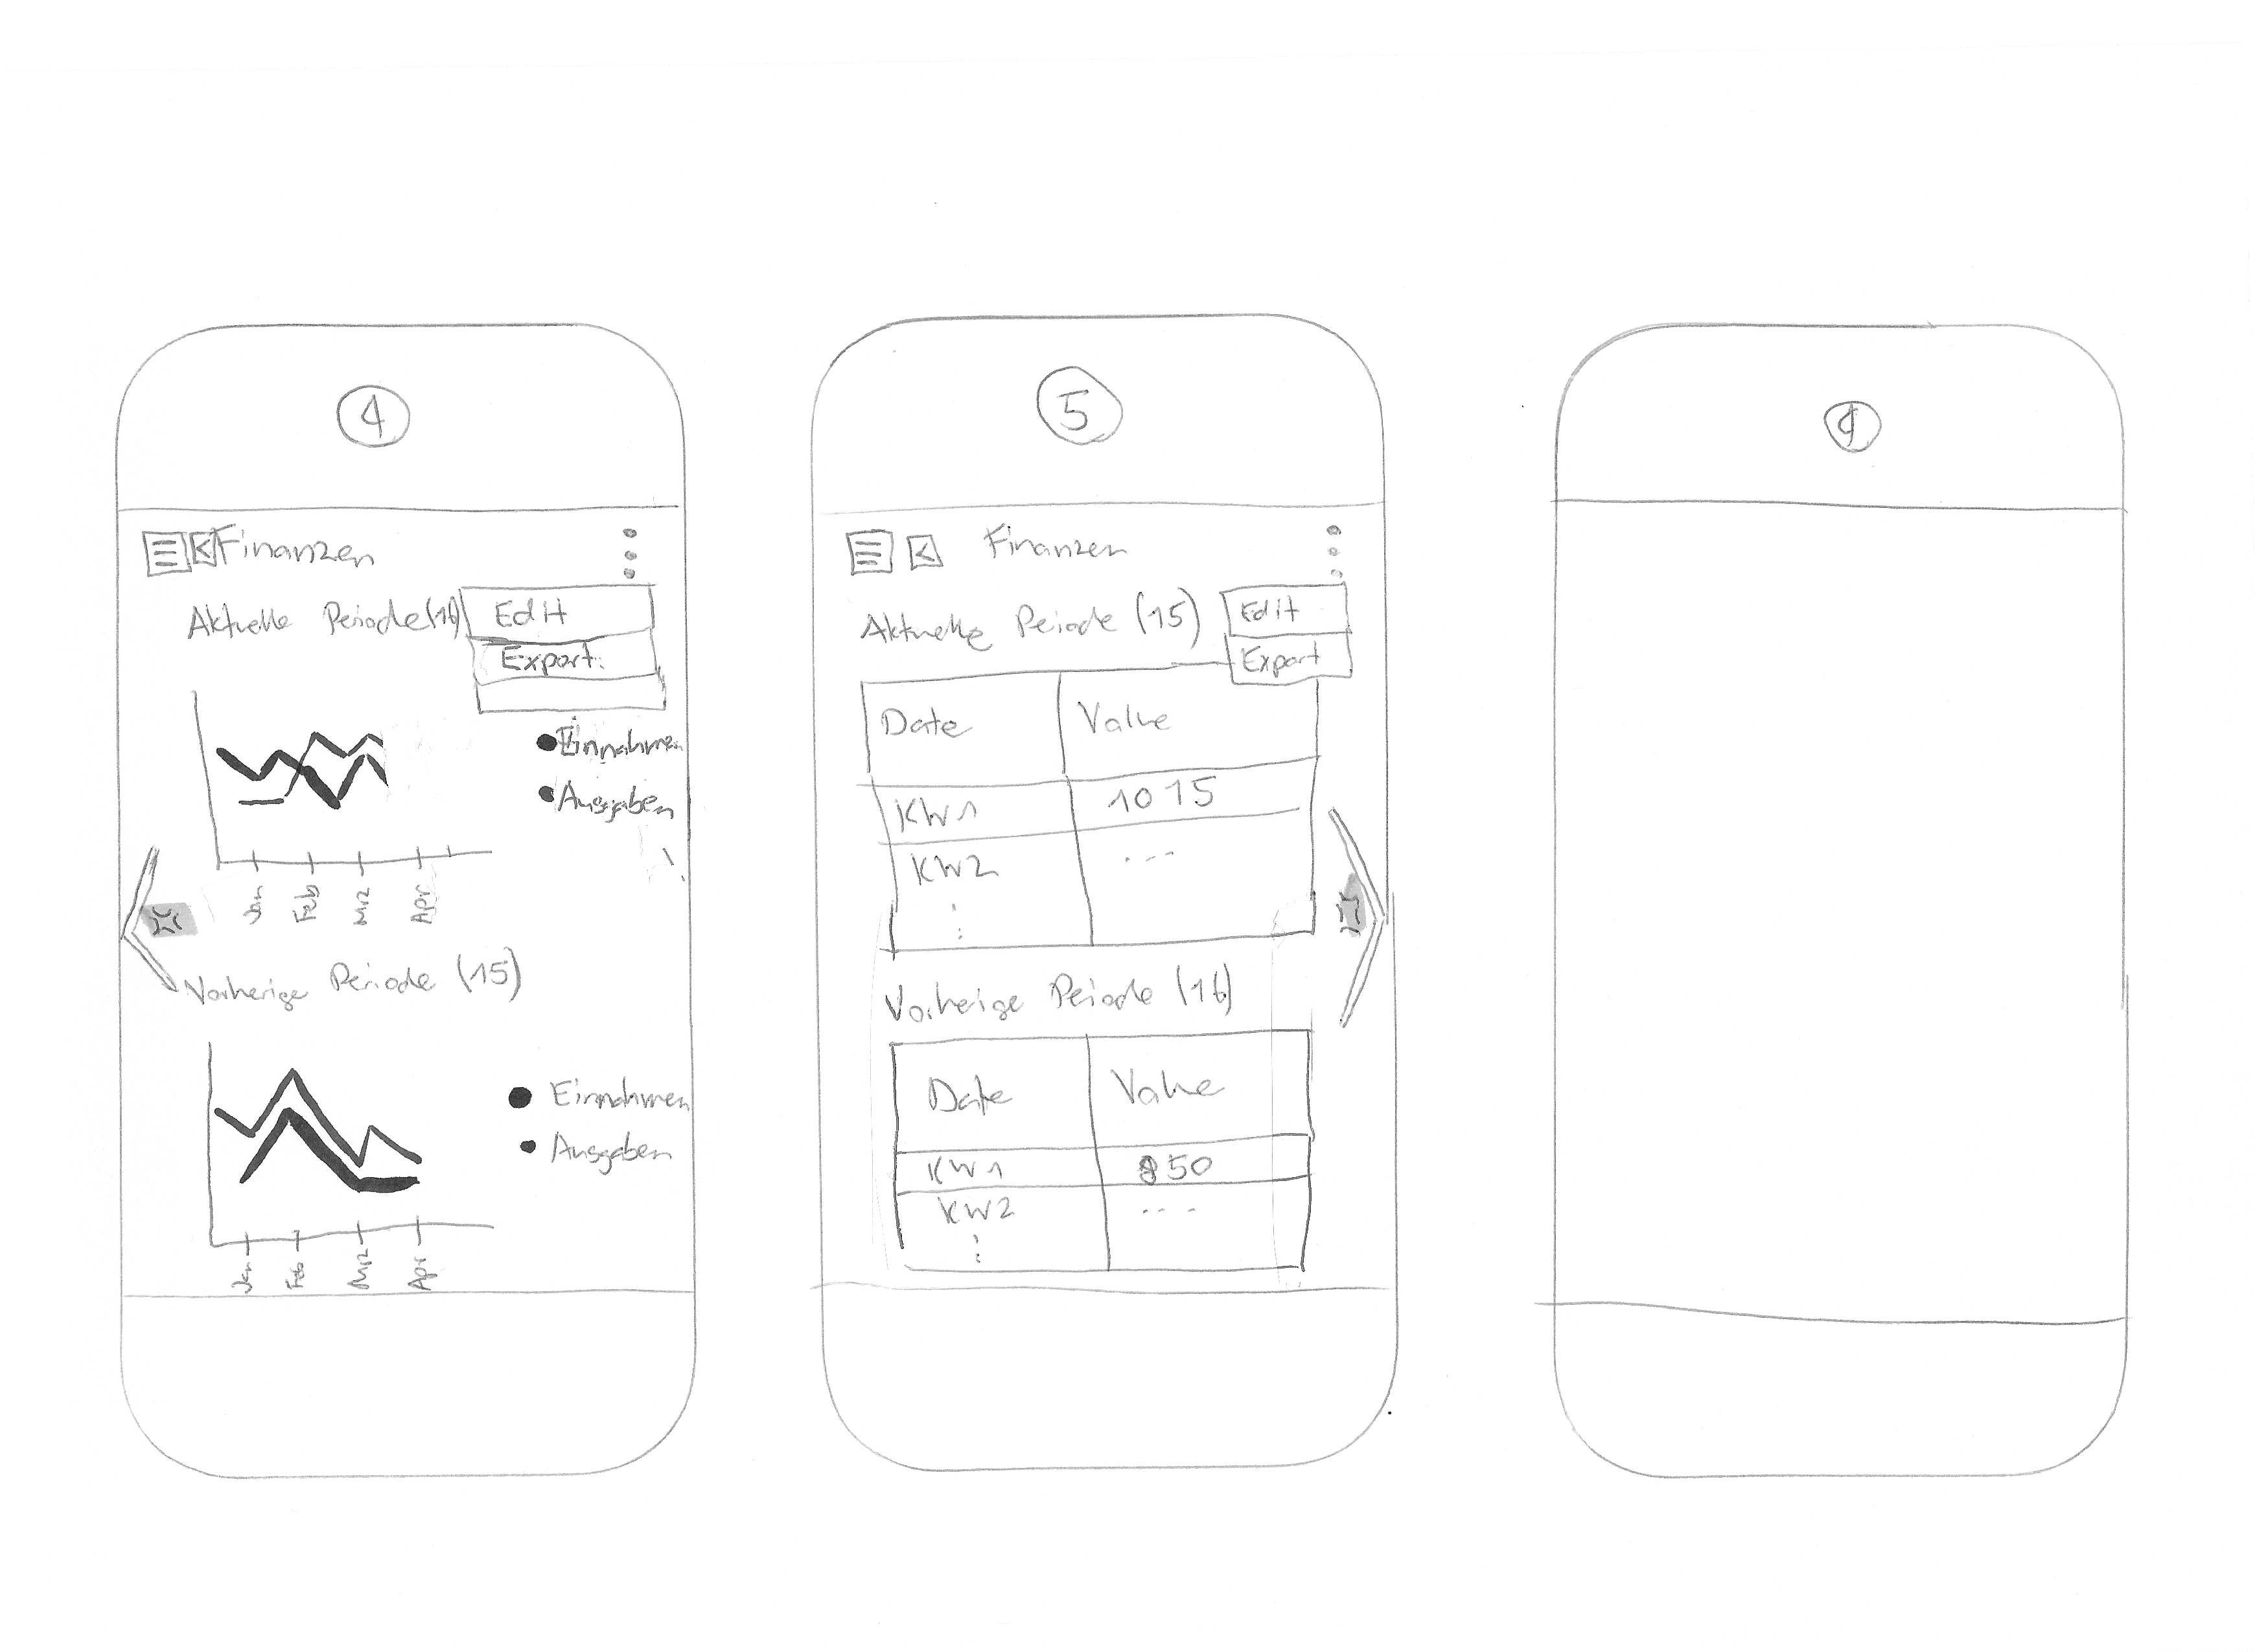 4
Finanzen
Aktuelle Periode (16)
Edit
Export
Einnahmen
Ausgaben
Jan Feb Mrz Apr
Vorherige Periode (15)
Einnahmen
Ausgaben
Jan Feb Mrz Apr
5
Finanzen
Aktuelle Periode (15)
Edit
Export
Date Value
KW1 1015
KW2 ---
Vorherige Periode (16)
Date Value
KW1 850
KW2 ---